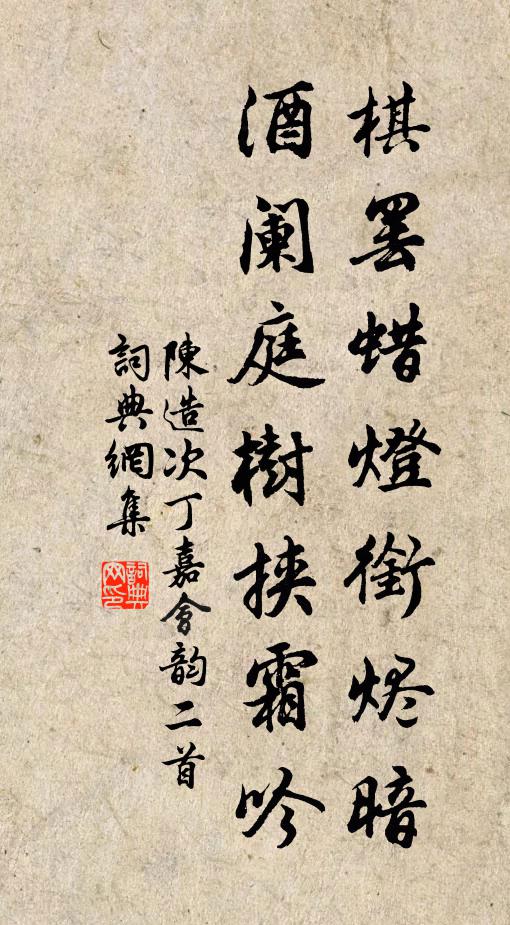 棋罢蜡燈銜烬暗
酒阑庭樹挾霜吟
陳造次丁嘉會韵二首
詞典網集
詞典网印